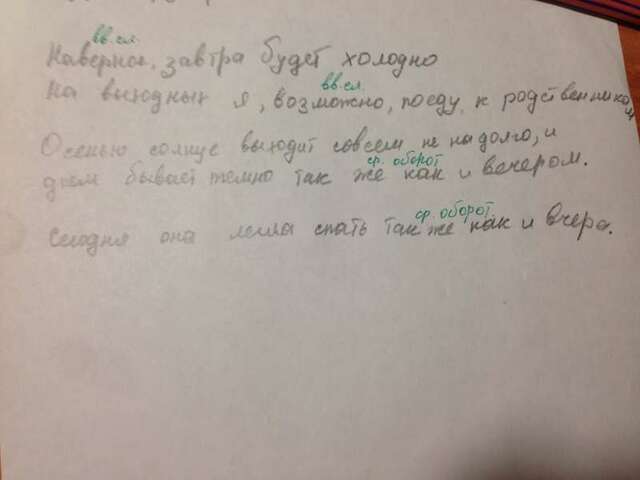 вв.сл.
Наверное, завтра будет холодно
вв.сл.
На выходных я, возможно, поеду к родственникам
Осенью солнце выходит совсем не на долго, и
ср. оборот
днём бывает темно так же как и вечером.
ср. оборот
Сегодня она легла спать так же как и вчера.